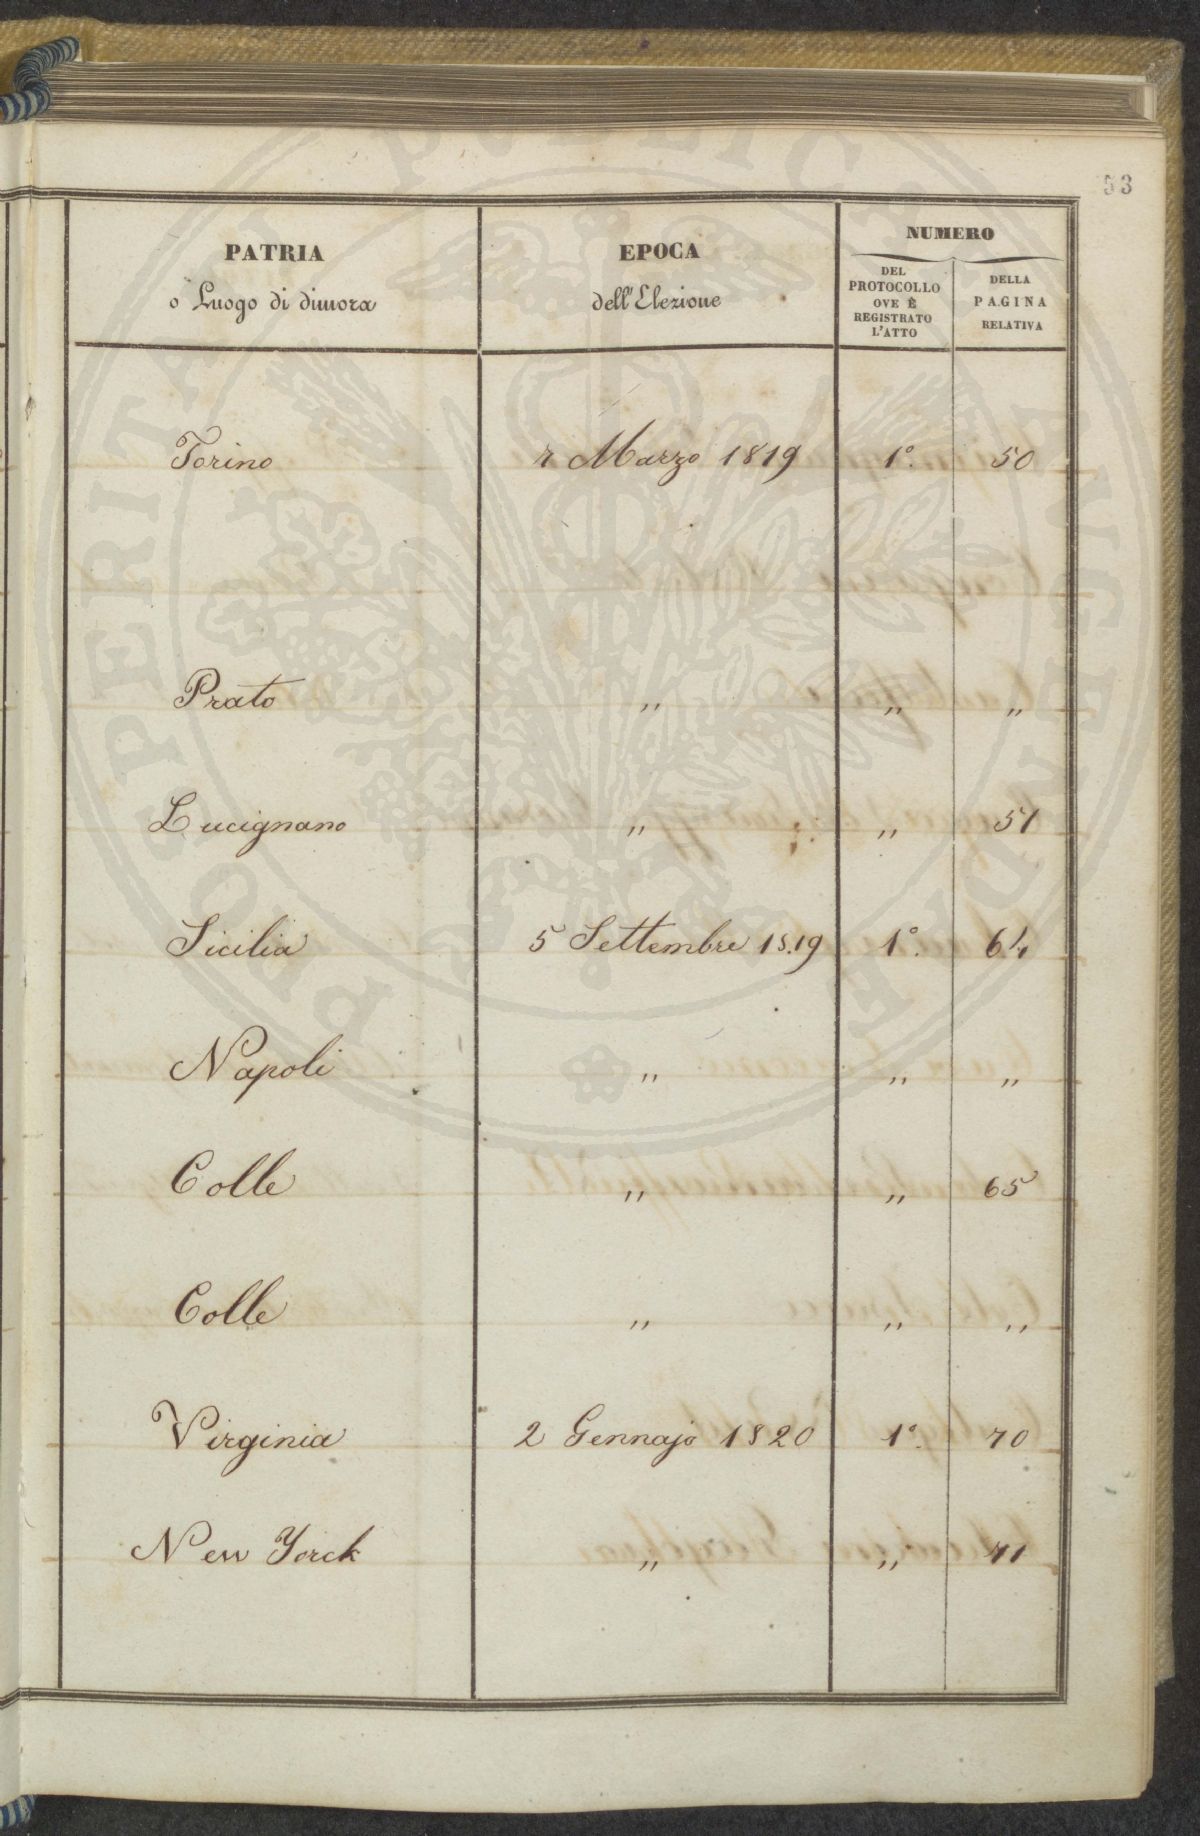 53
PATRIA
o Luogo di dimora
EPOCA
dell'Elezione
NUMERO
DEL PROTOCOLLO OVE È REGISTRATO L'ATTO
DELLA PAGINA RELATIVA
Torino 7 Marzo 1819 1° 50
Prato " " "
Lucignano " " 51
Sicilia 5 Settembre 1819 1° 64
Napoli " " "
Colle " " 65
Colle " " "
Virginia 2 Gennajo 1820 1° 70
New Yorck " " 71
PROSPERITÀ PUBLICA AUGENDAE